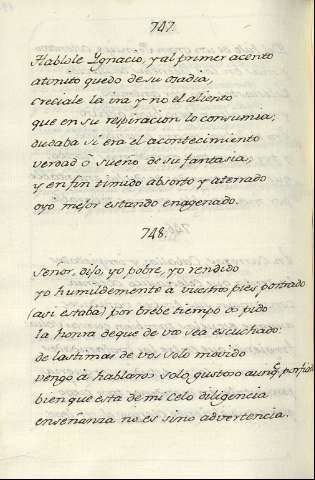 747.
Hablole Ygnacio, y al primer acento
atonito quedo de su osadia,
creciale la ira y no el aliento
que en su respiracion lo consumia;
dudaba si era el acontecimiento
verdad ò sueño de su fantasia;
y en fin timido absorto y aterrado
oyò mejor estando enagenado.
748.
Señor, dijo, yo pobre, yo rendido
yo humildemente à vuestros pies postrado
(asi estaba) por brebe tiempo os pido
la honra de que de vos sea escuchado:
de lastimas de vos solo movido
vengo à hablaros solo gustoso aunq.e porfiado
bien que esta de mi celo diligencia
enseñanza no es sino advertencia.